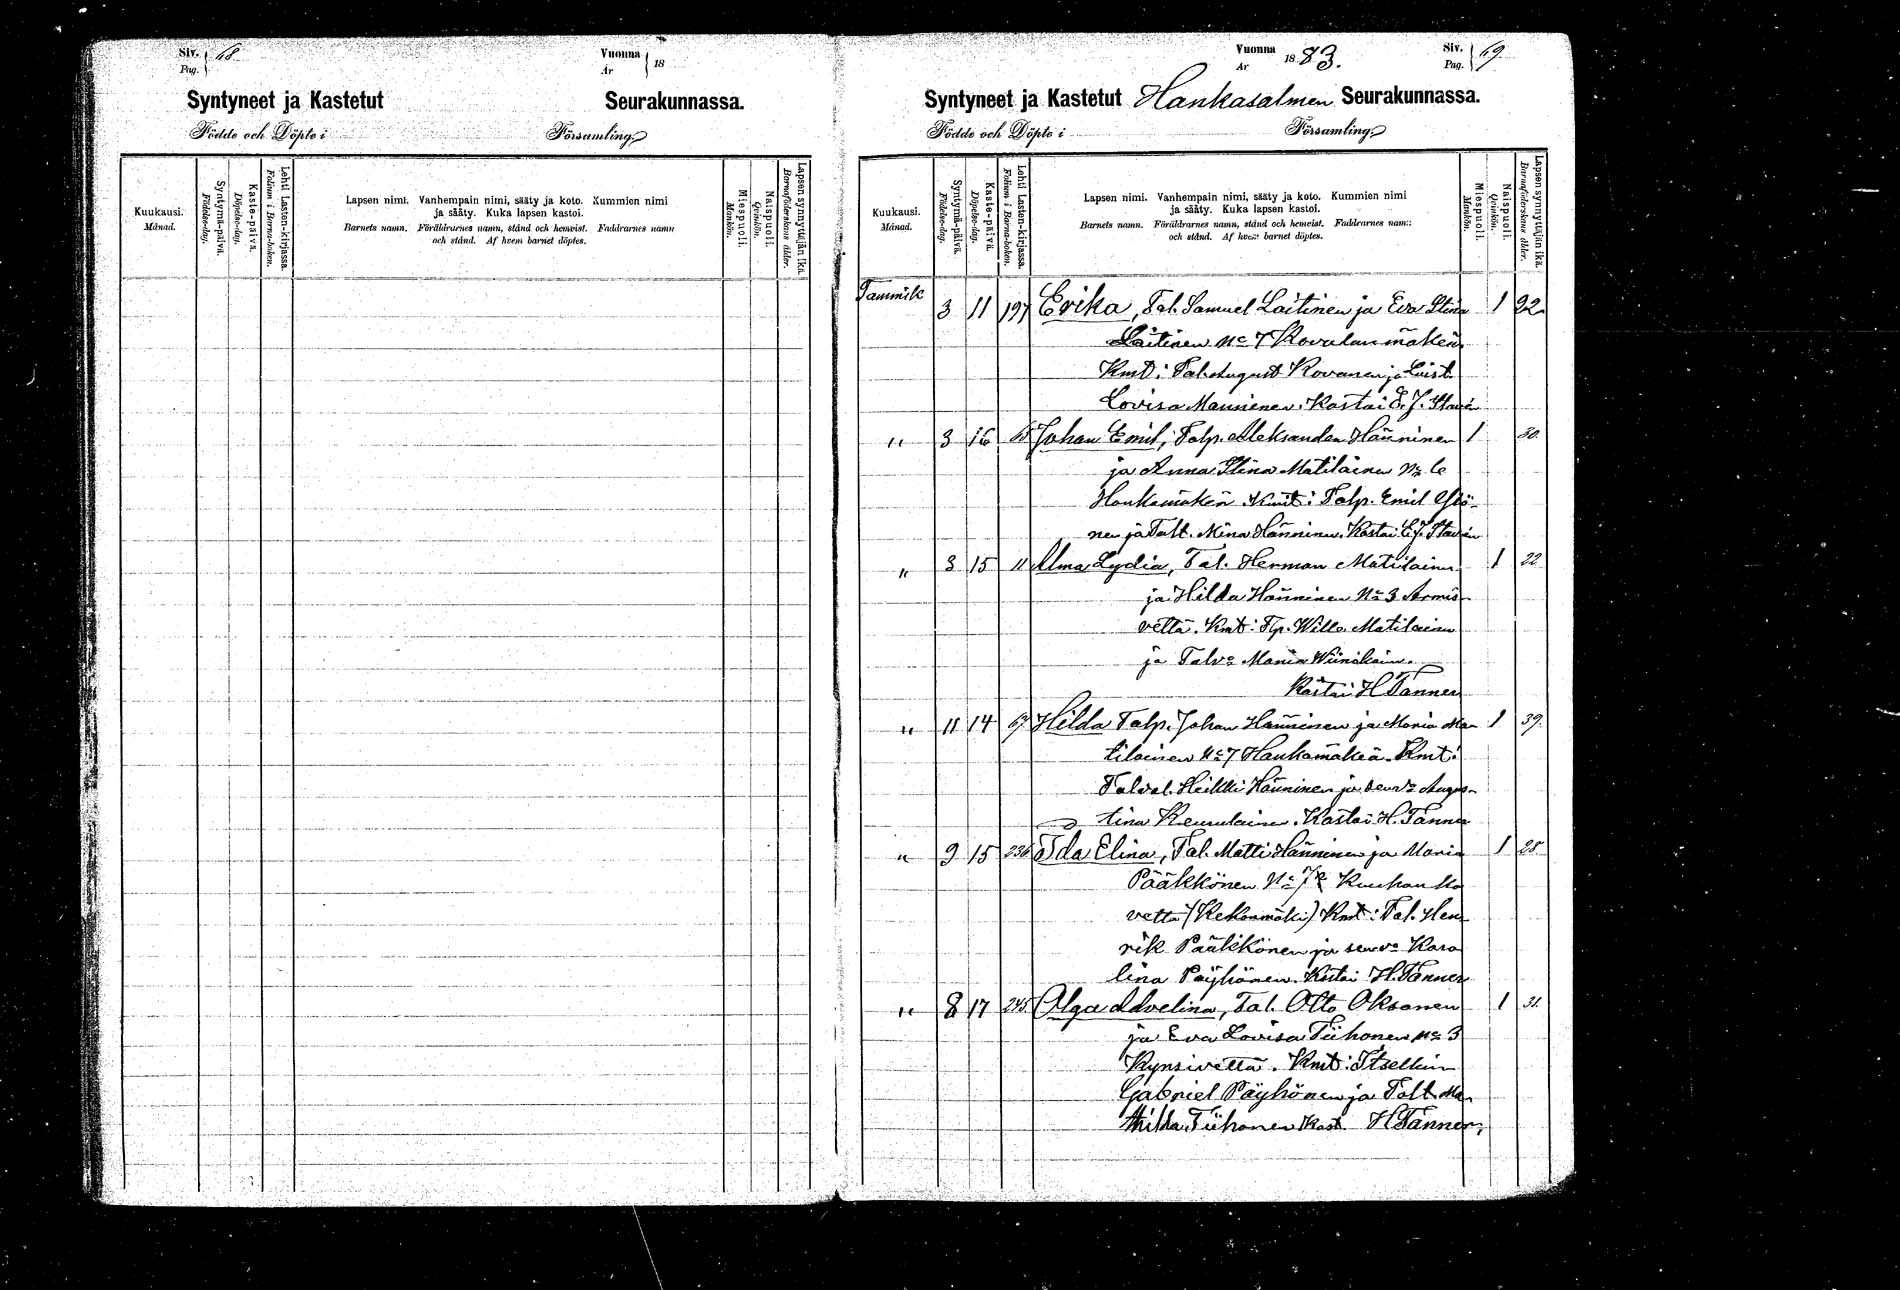 Siv. 68
Pag.
Vuonna 18
År
Syntyneet ja Kastetut Seurakunnassa.
Födde och Döpte i Församling.
Kuukausi.
Månad.
Syntymä-päivä.
Födelse-dag.
Kaste-päivä.
Döpelse-dag.
Lehti Lasten-kirjassa.
Folium i Barna-boken.
Lapsen nimi. Vanhempain nimi, sääty ja koto. Kummien nimi
ja sääty. Kuka lapsen kastoi.
Barnets namn. Föräldrarnes namn, stånd och hemvist. Faddrarnes namn
och stånd. Af hvem barnet döptes.
Miespuoli.
Mankön.
Naispuoli.
Qvinkön.
Lapsen synnyttäjän ikä.
Barnaföderskans ålder.
Vuonna 1883.
År
Siv. 69
Pag.
Syntyneet ja Kastetut Hankasalmen Seurakunnassa.
Födde och Döpte i Församling.
Kuukausi.
Månad.
Syntymä-päivä.
Födelse-dag.
Kaste-päivä.
Döpelse-dag.
Lehti Lasten-kirjassa.
Folium i Barna-boken.
Lapsen nimi. Vanhempain nimi, sääty ja koto. Kummien nimi
ja sääty. Kuka lapsen kastoi.
Barnets namn. Föräldrarnes namn, stånd och hemvist. Faddrarnes namn
och stånd. Af hvem barnet döptes.
Miespuoli.
Mankön.
Naispuoli.
Qvinkön.
Lapsen synnyttäjän ikä.
Barnaföderskans ålder.
Tammik
3 11 197 Erika, Tal. Samuel Laitinen ja Eva Stina 1 22
Laitinen No 7 Rovalanmäkeä.
Kmt: Tal. August Rovanen ja
Lovisa Manninen. Kastai E. J. Stavén
" 3 16 65 Johan Emil, Talp. Aleksander Hänninen 1 30.
ja Anna Stina Matilainen No 6
Haukamäkeä. Kmt: Talp. Emil Ylö-
nen ja Talt. Mina Hänninen. Kastai E. J. Stavén
" 3 15 11 Alma Lydia, Tal. Herman Matilainen 1 22
ja Hilda Hänninen No 3 Armis-
vettä. Kmt: Tlp. Wille Matilainen
ja Talvo Maria
Kastai H Tanner
" 11 14 67 Hilda Talp. Johan Hänninen ja Maria Ma- 1 39.
tilainen No 7 Haukamäkeä. Kmt:
Heikki Hänninen ja Augus-
tina. Kastai H. Tanner
" 9 15 236 Ida Elina, Tal. Matti Hänninen ja Maria 1 28
Pääkkönen No 7 Kuuhanka
vettä (Kekonmäki) Kmt: Tal. Hen
rik Pääkkönen ja Karo
lina Päyhönen. Kastai H. Tanner
" 8 17 245. Olga Advelina, Tal. Otto Oksanen 1 31.
ja Eva Lovisa Tiihonen No 3
Kynsivettä. Kmt: Itsellin
Gabriel Päyhönen ja Talt. Ma
thilda Tiihonen Kast. H Tanner,